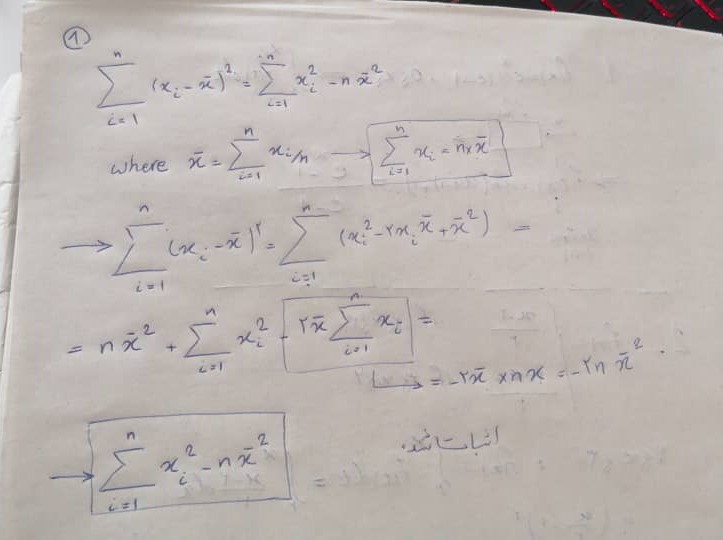 ①
∑_{i=1}^{n} (x_i - x̄)^2 = ∑_{i=1}^{n} x_i^2 - n x̄^2
where x̄ = ∑_{i=1}^{n} x_i/n → ∑_{i=1}^{n} x_i = n × x̄
→ ∑_{i=1}^{n} (x_i - x̄)^۲ = ∑_{i=1}^{n} (x_i^2 - ۲x_i x̄ + x̄^2) =
= n x̄^2 + ∑_{i=1}^{n} x_i^2 - ۲x̄ ∑_{i=1}^{n} x_i =
→ = -۲x̄ × n x = -۲n x̄^2
اثبات شد.
→ ∑_{i=1}^{n} x_i^2 - n x̄^2